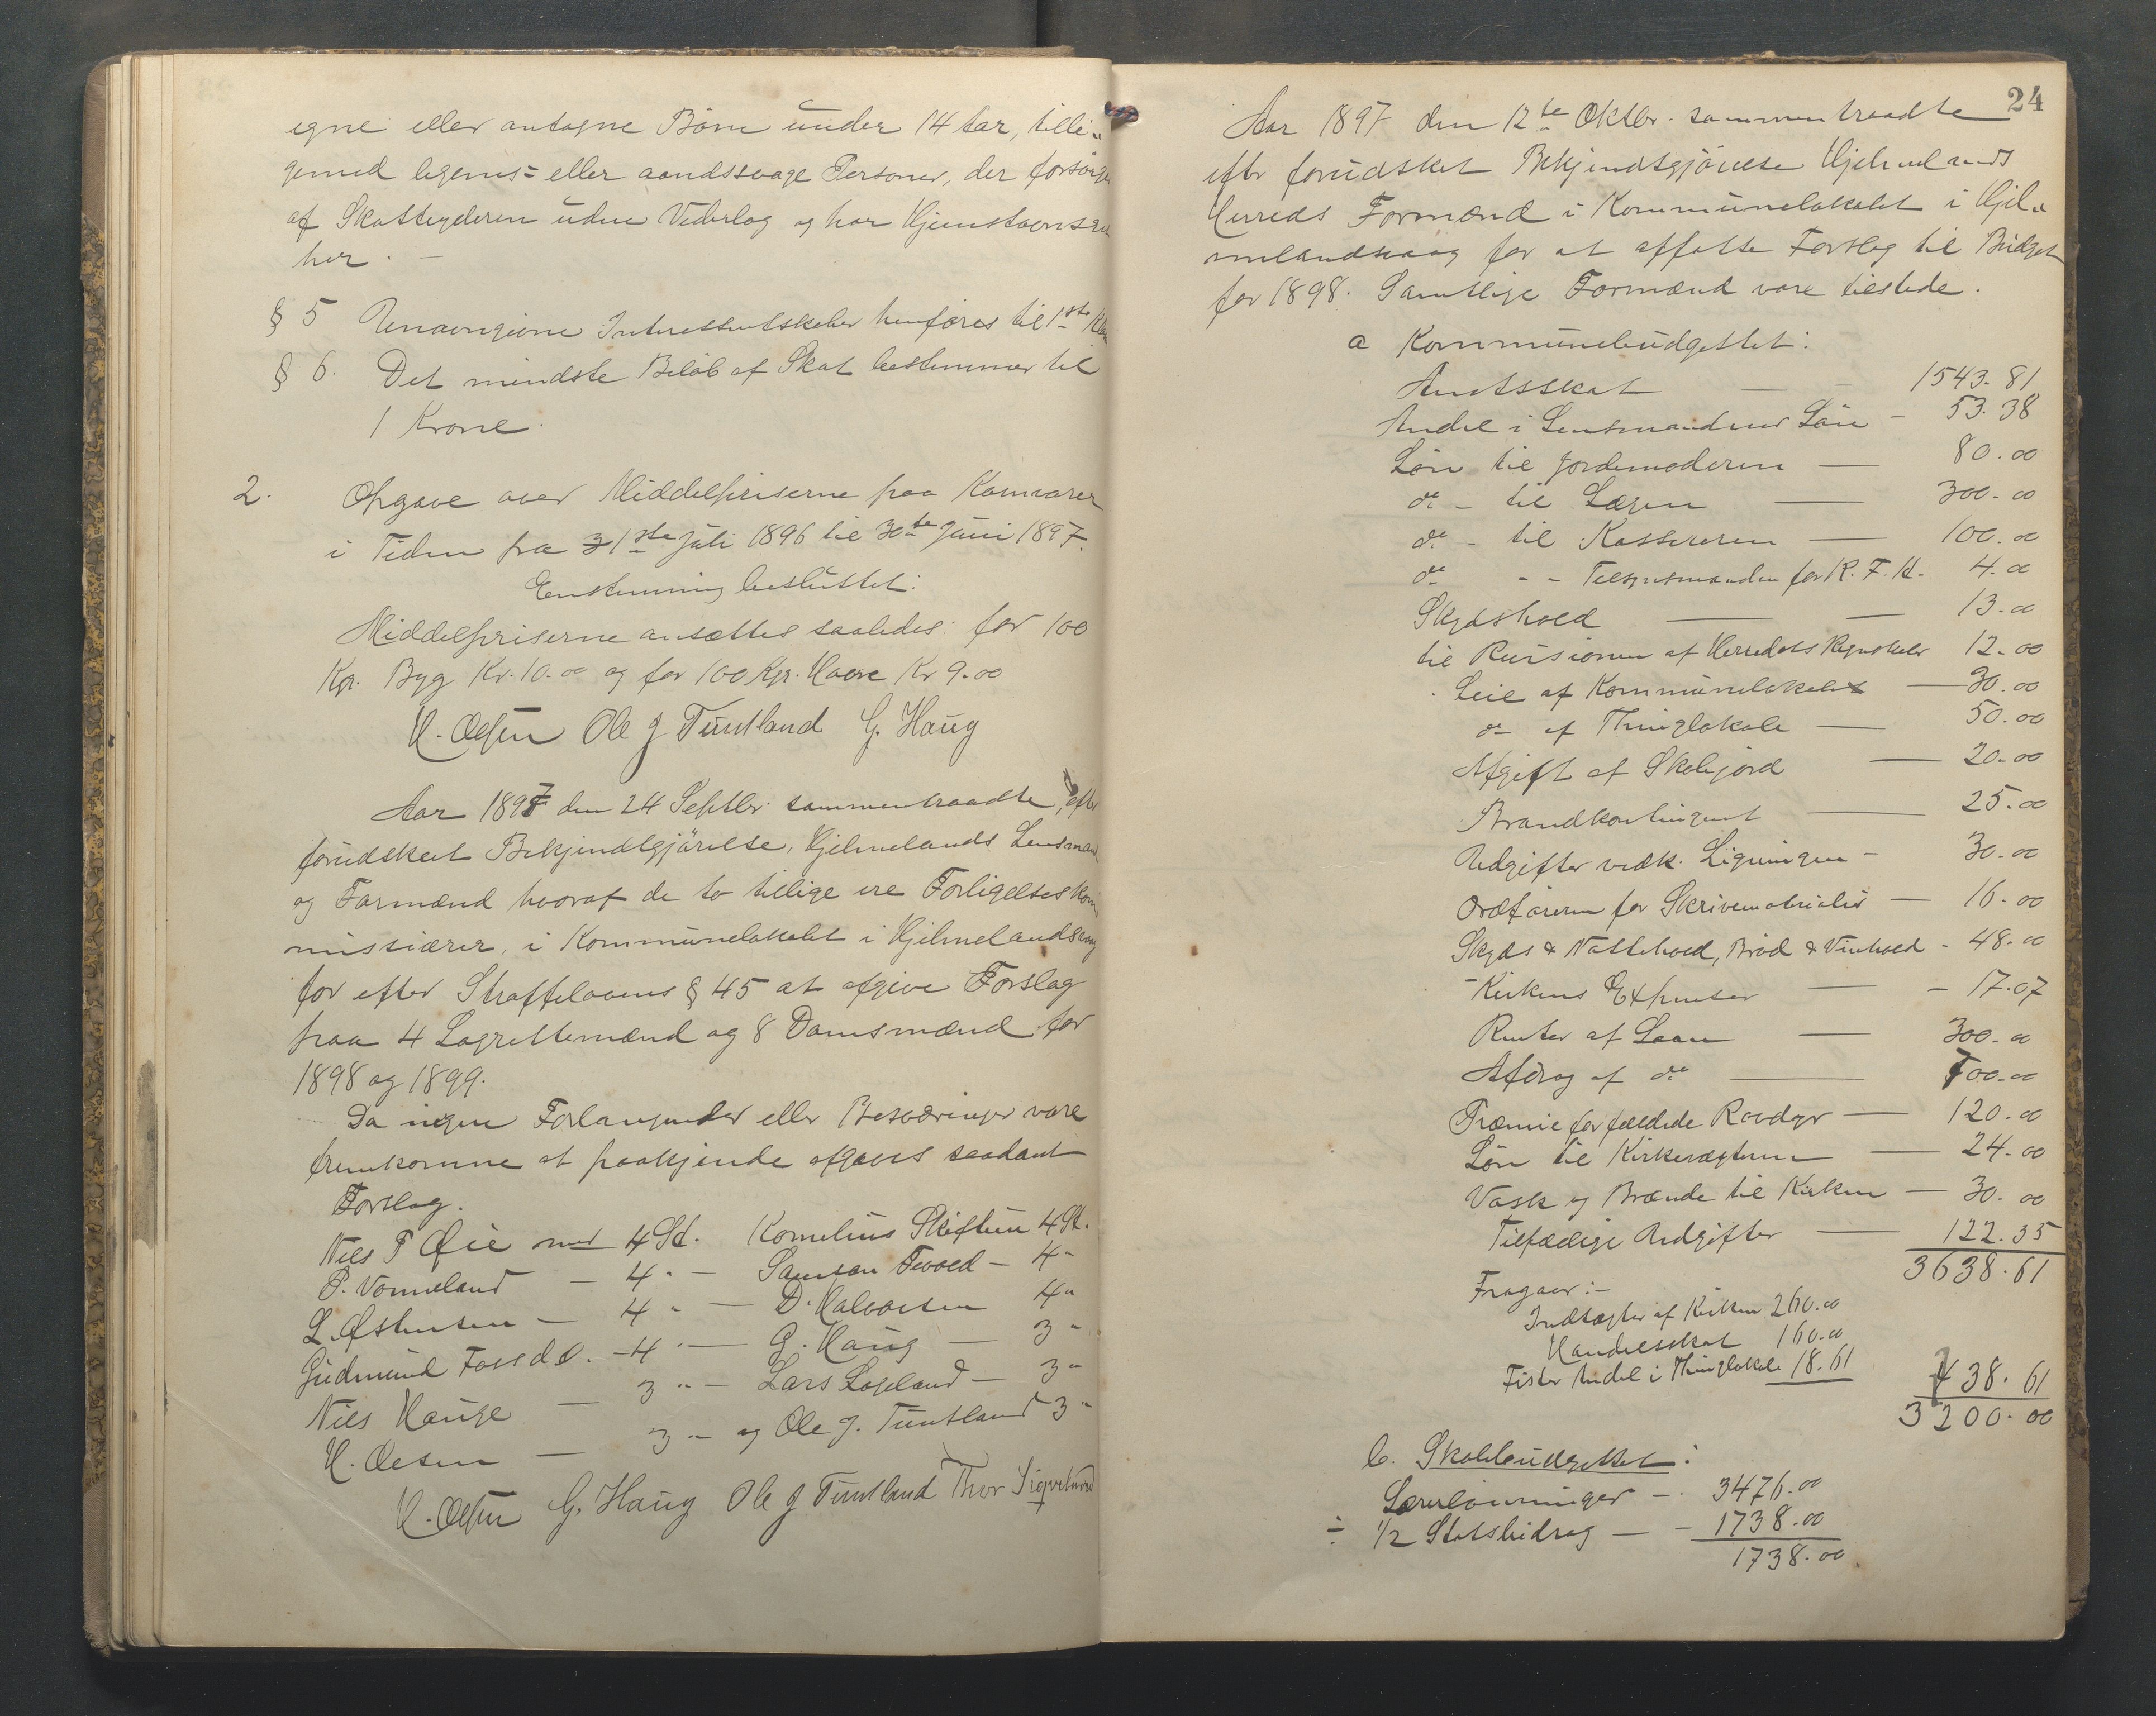 egne eller antagne Børn under 14 Aar, tilli-
gemed legems- eller aandssvage Personer, der forsørges
af Skatteyderen uden Vederlag og har Hjemstavnsret
her. —
§ 5 Unavngivne Interessentskaber henføres til 1ste Klasse
§ 6. Det mindste Beløb af Skat bestemmes til
1 Krone.
2. Opgave over Middelpriserne paa Kornvarer
i Tiden fra 1ste Juli 1896 til 30te Juni 1897.
Enstemmig besluttet:
Middelpriserne ansættes saaledes: for 100
Kgr. Byg Kr. 10.00 og for 100 Kgr. Havre Kr 9.00
H. Olsen Ole J Tuntland G. Haug
Aar 1897 den 24 Septbr. sammentraadte, efter
forudskeet Bekjendtgjørelse, Hjelmelands Lensmand
og Formænd hvoraf de to tillige ere Forligelseskom
missiærer, i Kommunelokalet i Hjelmelandsvaag
for efter Straffelovens § 45 at afgive Forslag
paa 4 Lagrettemænd og 8 Domsmænd for
1898 og 1899.
Da ingen Forlangender eller Besværinger vare
fremkomne at paakjende afgaves saadant
Forslag.
Nils P Øie med 4 St. Kornelius Skiftun 4 St.
P. Vormeland — 4 " — Samson Tvoed — 4 "
L. Østensen — 4 " — D. Halvorsen 4 "
Gudmund Fosed. — 4 " — G. Haug — 3 "
Nils Hauge — 3 " — Lars Logeland — 3 "
H. Olsen — 3 " — og Ole J. Tuntland 3 "
H. Olsen G. Haug Ole J Tuntland Thor Sigvebrand
24
Aar 1897 den 12te Oktbr. sammentraadte
efter forudskeet Bekjendtgjørelse Hjelmelands
Herreds Formænd i Kommunelokalet i Hjel-
melandsvaag for at affatte Forslag til Budget
for 1898. Samtlige Formænd vare tilstede.
a Kommunebudgettet:
Amtsskat — — 1543.81
Andel i Lensmandens Løn — 53.38
Løn til Jordemoderen — 80.00
do — til Lægen — 300.00
do — til Kassereren — 100.00
do - - Tilsynsmanden for K. F. K. 4.00
Skydshold — — 13.00
til Revisionen af Herredets Regnskaber 12.00
Leie af Kommunelokalet — 30.00
do af Thinglokale — 50.00
Afgift af Skolejord — 20.00
Brandkontingent — 25.00
Udgifter vedk. Ligningen — 30.00
Ordføreren for Skrivematerialier — 16.00
Skyds & Nattehold, Brød & Vinhold - 48.00
Kirkens Expenser — — 17.07
Renter af Laan — 300.00
Afdrag af do — 700.00
Præmie for fældede Rovdyr — 120.00
Løn til Kirkeværgerne — 24.00
Vask og Brænde til Kirken — 30.00
Tilfældige Udgifter — 122.35
3638.61
Fragaar: —
Indtægter af Kirken 260.00
Handelsskat 160.00
Fister Andel i Thinglokale 18.61 438.61
3200.00
b. Skolebudgettet:
Lærerlønninger — 3476.00
÷ 1/2 Statsbidrag — — 1738.00
1738.00